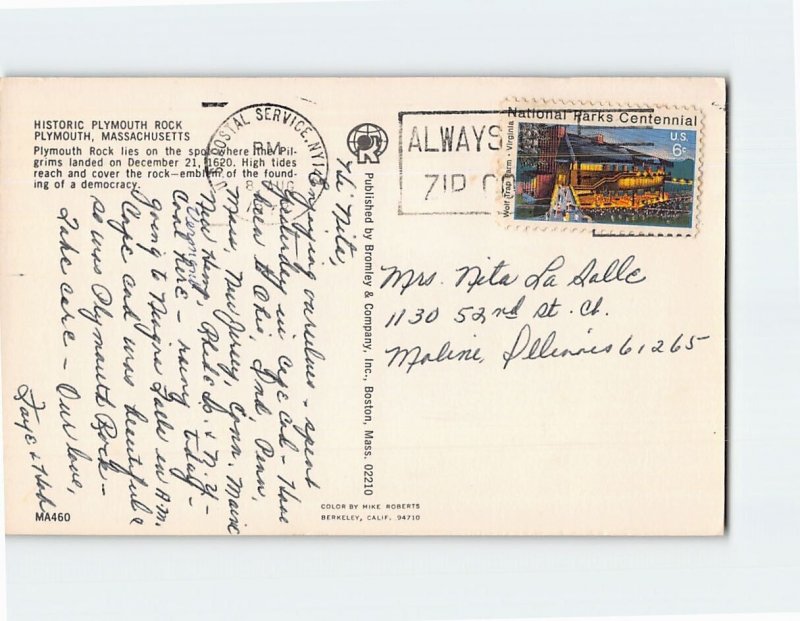 HISTORIC PLYMOUTH ROCK
PLYMOUTH, MASSACHUSETTS
Plymouth Rock lies on the spot where the Pil-
grims landed on December 21, 1620. High tides
reach and cover the rock—emblem of the found-
ing of a democracy.
Hi Nita,
Enjoying ourselves - spent
yesterday in Cape Cod - Have
been to Ind, Penn,
Mass, New Jersey, Conn. Maine
New Hamp, Rhode Is. & N.Y -
Vermont
Cool here - rainy today -
going to Niagra Falls in A.M.
Cape Cod was beautiful &
so was Plymouth Rock -
Take care - Our love,
Faye &
MA460
Published by Bromley & Company, Inc., Boston, Mass. 02210
COLOR BY MIKE ROBERTS
BERKELEY, CALIF. 94710
U.S. POSTAL SERVICE, NY
PM
ALWAYS
ZIP CO
National Parks Centennial
U.S.
6c
Wolf Trap Farm - Virginia
Mrs. Nita La Salle
1130 52nd St. Ct.
Moline, Illinois 61265